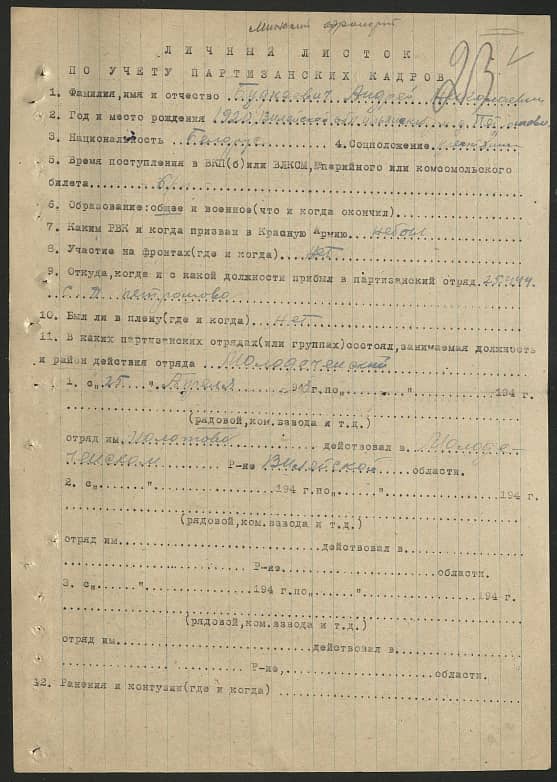 Минский
ЛИЧНЫЙ ЛИСТОК
ПО УЧЕТУ ПАРТИЗАНСКИХ КАДРОВ
1. Фамилия,имя и отчество Андрей
2. Год и место рождения 1920 Вилейской обл
3. Национальность Беларус 4.Соцположение
5. Время поступления в ВКП(б)или ВЛКСМ,№партийного или комсомольского
билета б/п
6. Образование:общее и военное(что и когда окончил)
7. Каким РВК и когда призван в Красную Армию. небыл
8. Участие на фронтах(где и когда) нет
9. Откуда,когда и с какой должности прибыл в партизанский отряд
С
10. Был ли в плену(где и когда) нет
11. В каких партизанских отрядах(или группах)состоял,занимаемая должность
и район действия отряда Молодеченский
1. с„25 " Апреля 194 г.по„ " 194 г.
(рядовой,ком.взвода и т.д.)
отряд им. действовал в Молоде-
ченском Р-не Вилейской области.
2. с„ " 194 г.по„ " 194 г.
(рядовой,ком.взвода и т.д.)
отряд им. действовал в
Р-не. области.
3. с„ " 194 г.по„ " 194 г.
(рядовой,ком.взвода и т.д.)
отряд им. действовал в
Р-не, области.
12. Ранения и контузии(где и когда)